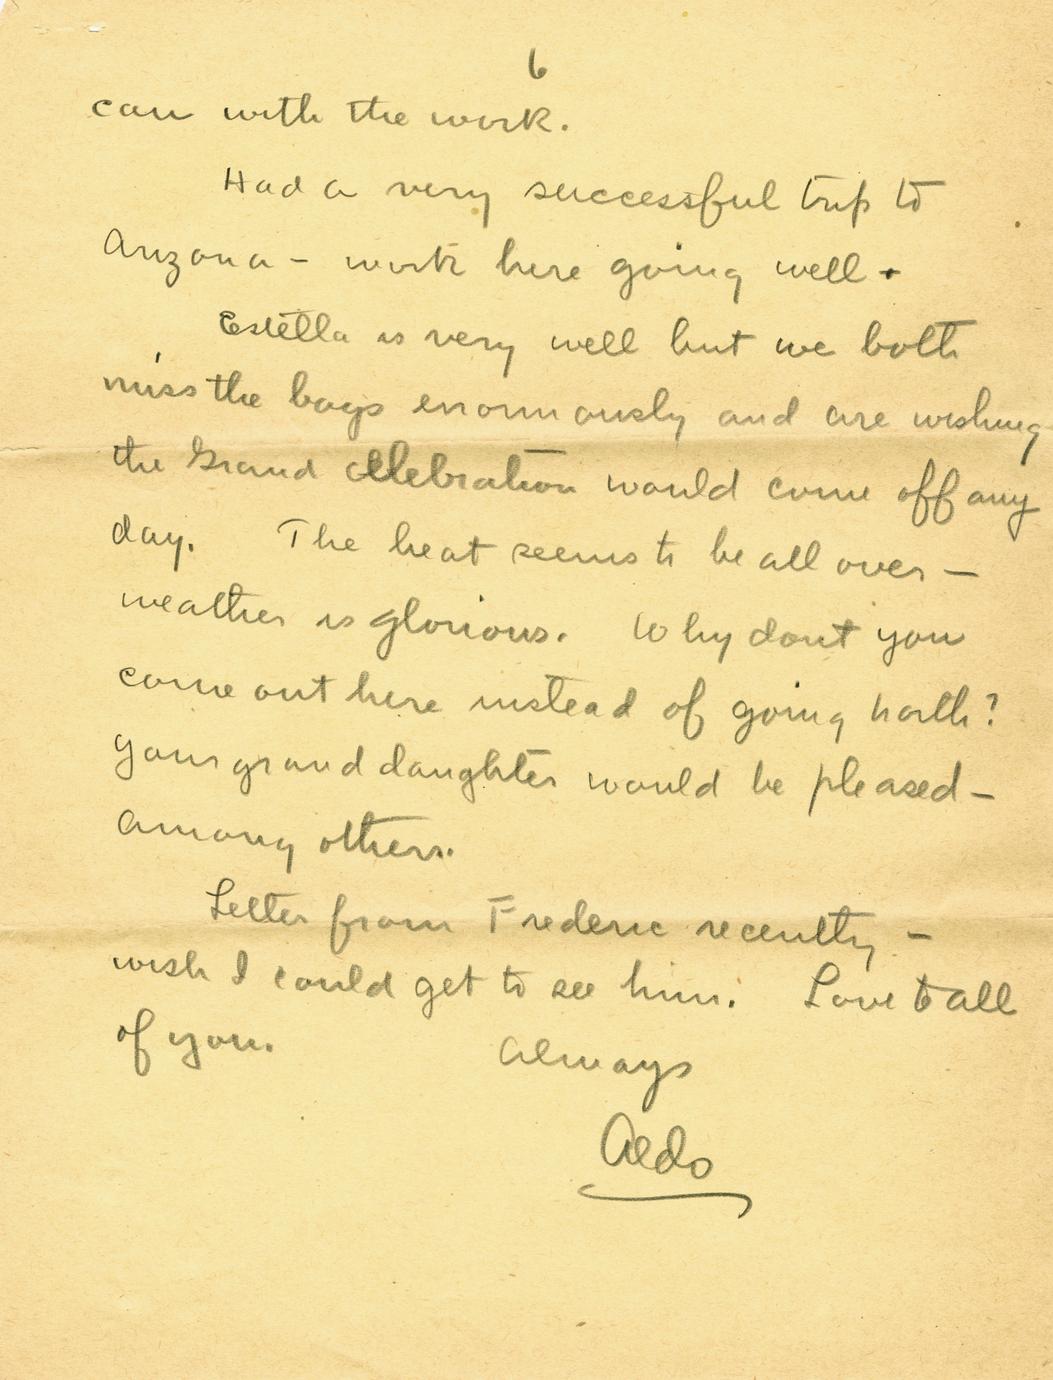 6
can with the work.
Had a very successful trip to
Arizona – work here going well.
Estella is very well but we both
miss the boys enormously and are wishing
the Grand Celebration would come off any
day. The heat seems to be all over –
weather is glorious. Why dont you
come out here instead of going north?
your granddaughter would be pleased –
among others.
Letter from Frederic recently –
wish I could get to see him. Love to all
of you.
Always
Aldo